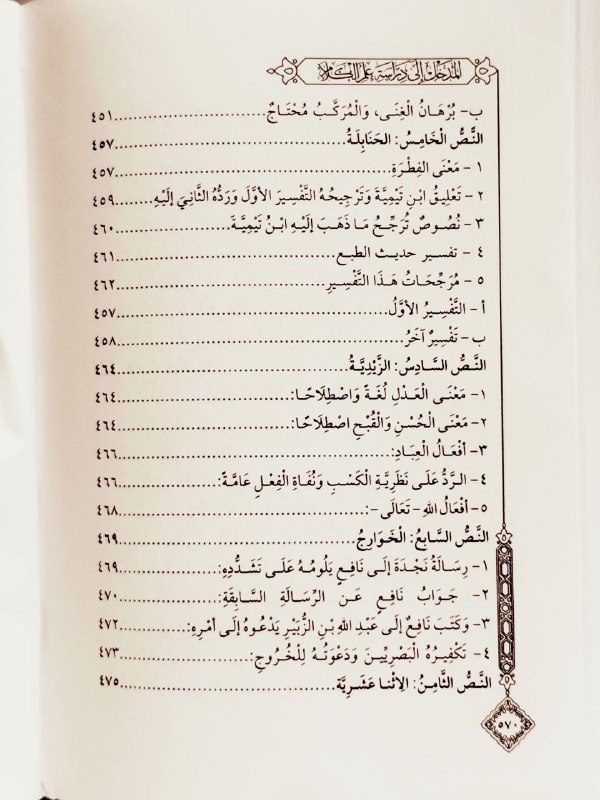 المدخل إلى دراسة علم الكلام
ب- بُرْهَانُ الْغِنَى، وَالْمُرَكَّبُ مُحْتَاجٌ ٤٥١
النَّصُّ الْخَامِسُ: الْحَنَابِلَةُ ٤٥٧
١ - مَعْنَى الفِطْرَةِ ٤٥٧
٢ - تَعْلِيقُ ابْنِ تَيْمِيَّةَ وَتَرْجِيحُهُ التَّفْسِيرَ الأَوَّلَ وَرَدُّهُ الثَّانِيَ إِلَيْهِ ٤٥٩
٣ - نُصُوصٌ تُرَجِّحُ مَا ذَهَبَ إِلَيْهِ ابْنُ تَيْمِيَّةَ ٤٦٠
٤ - تفسير حديث الطبع ٤٦١
٥ - مُرَجِّحَاتُ هَذَا التَّفْسِيرِ ٤٦٢
أ - التَّفْسِيرُ الأَوَّلُ ٤٥٧
ب - تَفْسِيرٌ آخَرُ ٤٥٨
النَّصُّ السَّادِسُ: الزَّيْدِيَّةُ ٤٦٤
١- مَعْنَى الْعَدْلِ لُغَةً وَاصْطِلَاحًا: ٤٦٤
٢- مَعْنَى الْحُسْنِ وَالْقُبْحِ اصْطِلَاحًا: ٤٦٤
٣- أَفْعَالُ العِبَادِ: ٤٦٦
٤ - الرَّدُّ عَلَى نَظَرِيَّةِ الْكَسْبِ وَنُفَاةِ الْفِعْلِ عَامَّةً: ٤٦٦
٥- أَفْعَالُ اللهِ - تَعَالَى -: ٤٦٨
النَّصُّ السَّابِعُ: الْخَوَارِجُ ٤٦٩
١ - رِسَالَةُ نَجْدَةَ إِلَى نَافِعٍ يَلُومُهُ عَلَى تَشَدُّدِهِ: ٤٦٩
٢ - جَوَابُ نَافِعٍ عَنِ الرِّسَالَةِ السَّابِقَةِ: ٤٧٠
٣- وَكَتَبَ نَافِعٌ إِلَى عَبْدِ اللهِ بْنِ الزُّبَيْرِ يَدْعُوهُ إِلَى أَمْرِهِ: ٤٧٢
٤ - تَكْفِيرُهُ الْبَصْرِيِّينَ وَدَعْوَتُهُ لِلْخُرُوجِ: ٤٧٣
النَّصُّ الثَّامِنُ: الِاثْنَا عَشَرِيَّة ٤٧٥
٥٧٠